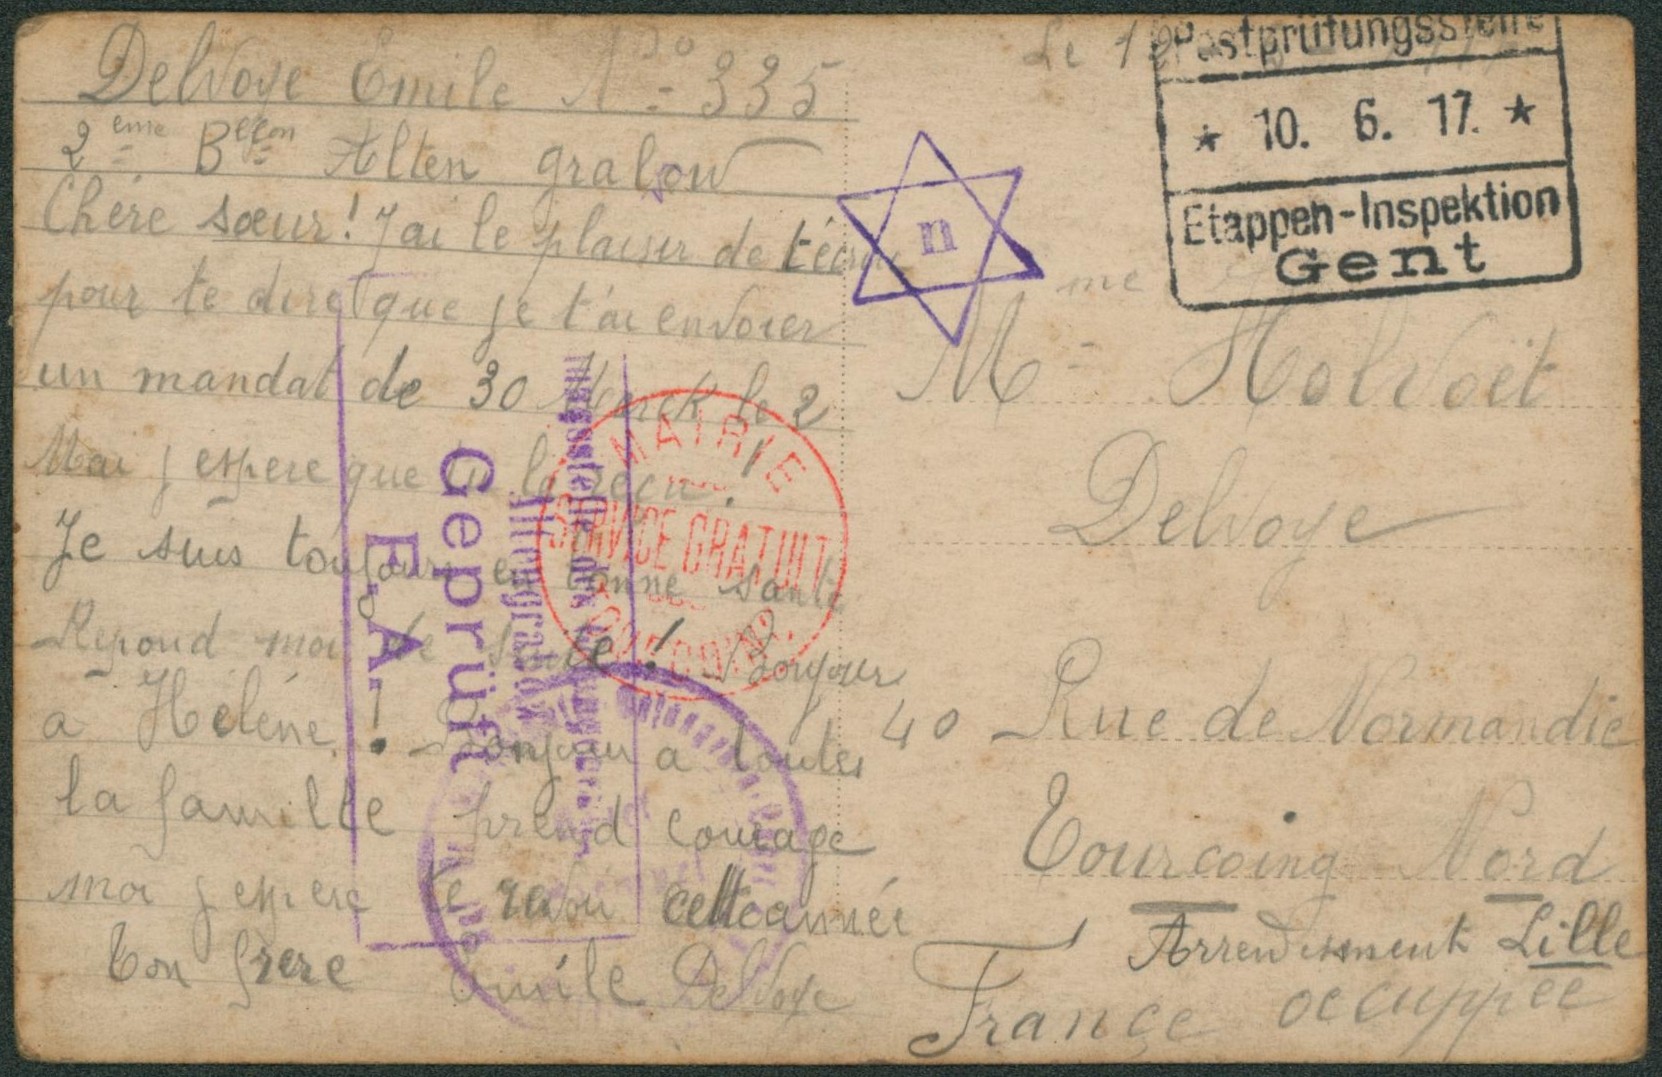 Delvoye Emile N° 335
2eme Bellon Alten gralow
Chére sœur! J'ai le plaisir de t'écrire
pour te dire que je t'ai envoier
un mandat de 30 Marck le 2
Mai j espere que tu la recu.
Je suis toujours en bonne santé
Repond moi de suite! Bonjour
a Heléne! Bonjour a toutes
la famille prend courage
moi j espere te revoir cette année
Ton frere Emile Delvoye
Le 1
Postprüfungsstelle
* 10. 6. 17. *
Etappen-Inspektion
Gent
n
Mme Holvoët
Delvoye
40 Rue de Normandie
Tourcoing Nord
Arrendisment Lille
France occuppée
MAIRIE
SERVICE GRATUIT
TOURCOING
Geprüft
F. A.